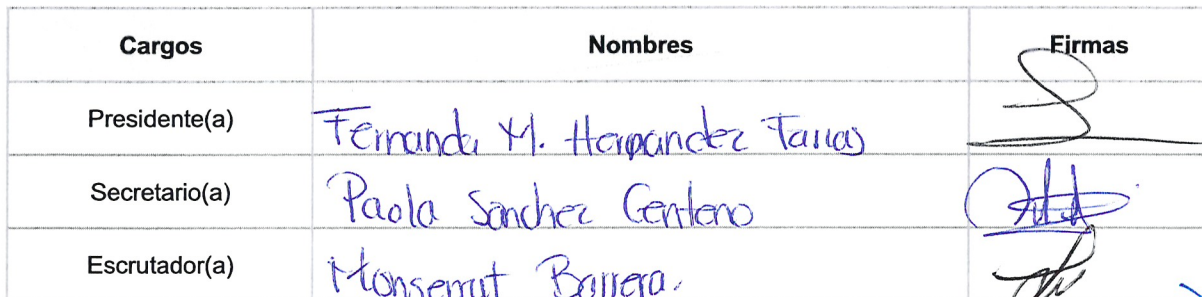 Cargos Nombres Firmas
Presidente(a) Fernanda M. Hernandez Farias
Secretario(a) Paola Sanchez Centeno
Escrutador(a) Monserrat Barrera.